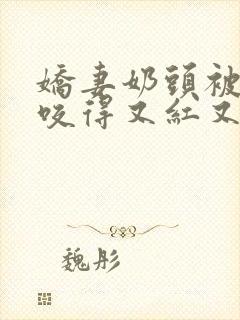 嬌妻奶頭被
咬得又紅又
魏彤